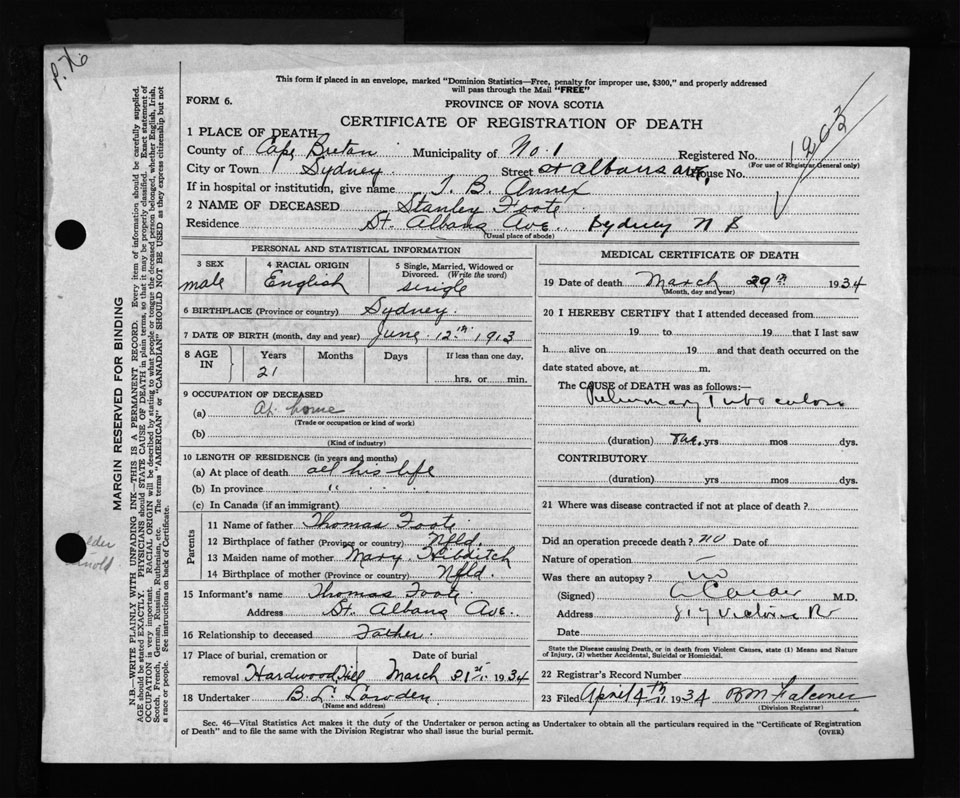 P. X6
This form if placed in an envelope, marked "Dominion Statistics—Free, penalty for improper use, $300," and properly addressed
will pass through the Mail "FREE"
FORM 6.
PROVINCE OF NOVA SCOTIA
1203
CERTIFICATE OF REGISTRATION OF DEATH
1 PLACE OF DEATH
County of Cape Breton Municipality of No. 1 Registered No.
(For use of Registrar General only)
City or Town Sydney Street St Albans ave, House No.
If in hospital or institution, give name T. B. Annex
2 NAME OF DECEASED Stanley Foote
Residence St. Albans Ave. Sydney N S
(Usual place of abode)
MARGIN RESERVED FOR BINDING
N.B.—WRITE PLAINLY WITH UNFADING INK—THIS IS A PERMANENT RECORD. Every item of information should be carefully supplied.
AGE should be stated EXACTLY. PHYSICIANS should STATE CAUSE OF DEATH in plain terms, so that it may be properly classified. Exact statement of
OCCUPATION is very important. RACIAL ORIGIN will be described by stating to what people or tongue the deceased person belonged, whether English, Irish,
Scotch, French, German, Russian, Ruthenian, etc. The terms "AMERICAN" or "CANADIAN" SHOULD NOT BE USED as they express citizenship but not
a race or people. See instructions on back of Certificate.
PERSONAL AND STATISTICAL INFORMATION
3 SEX
male
4 RACIAL ORIGIN
English
5 Single, Married, Widowed or
Divorced. (Write the word)
single
6 BIRTHPLACE (Province or country) Sydney.
7 DATE OF BIRTH (month, day and year) June 12th 1913
8 AGE
IN
Years Months Days If less than one day,
21
hrs. or min.
9 OCCUPATION OF DECEASED
(a) At home
(Trade or occupation or kind of work)
(b)
(Kind of industry)
10 LENGTH OF RESIDENCE (in years and months)
(a) At place of death all his life
(b) In province " "
(c) In Canada (if an immigrant)
Parents
11 Name of father Thomas Foote
12 Birthplace of father (Province or country) Nfld.
13 Maiden name of mother Mary Hibditch
14 Birthplace of mother (Province or country) Nfld.
15 Informant's name Thomas Foote
Address St. Albans Ave.
16 Relationship to deceased Father.
17 Place of burial, cremation or Date of burial
removal Hardwood Hill March 31st 1934
18 Undertaker B. L. Lowden
(Name and address)
MEDICAL CERTIFICATE OF DEATH
19 Date of death March 29th 1934
(Month, day and year)
20 I HEREBY CERTIFY that I attended deceased from
19 to 19 that I last saw
h alive on 19 and that death occurred on the
date stated above, at m.
The CAUSE of DEATH was as follows:—
Pulmonary Tuberculosis
(duration) yrs mos dys.
CONTRIBUTORY
(duration) yrs mos dys.
21 Where was disease contracted if not at place of death?
Did an operation precede death? no Date of
Nature of operation
Was there an autopsy? no
(Signed) M.D.
Address 817 Victoria Rd
Date
State the Disease causing Death, or in death from Violent Causes, state (1) Means and Nature
of Injury, (2) whether Accidental, Suicidal or Homicidal.
22 Registrar's Record Number
23 Filed April 4th 1934 Falconer
(Division Registrar)
Sec. 46—Vital Statistics Act makes it the duty of the Undertaker or person acting as Undertaker to obtain all the particulars required in the "Certificate of Registration
of Death" and to file the same with the Division Registrar who shall issue the burial permit.
(OVER)